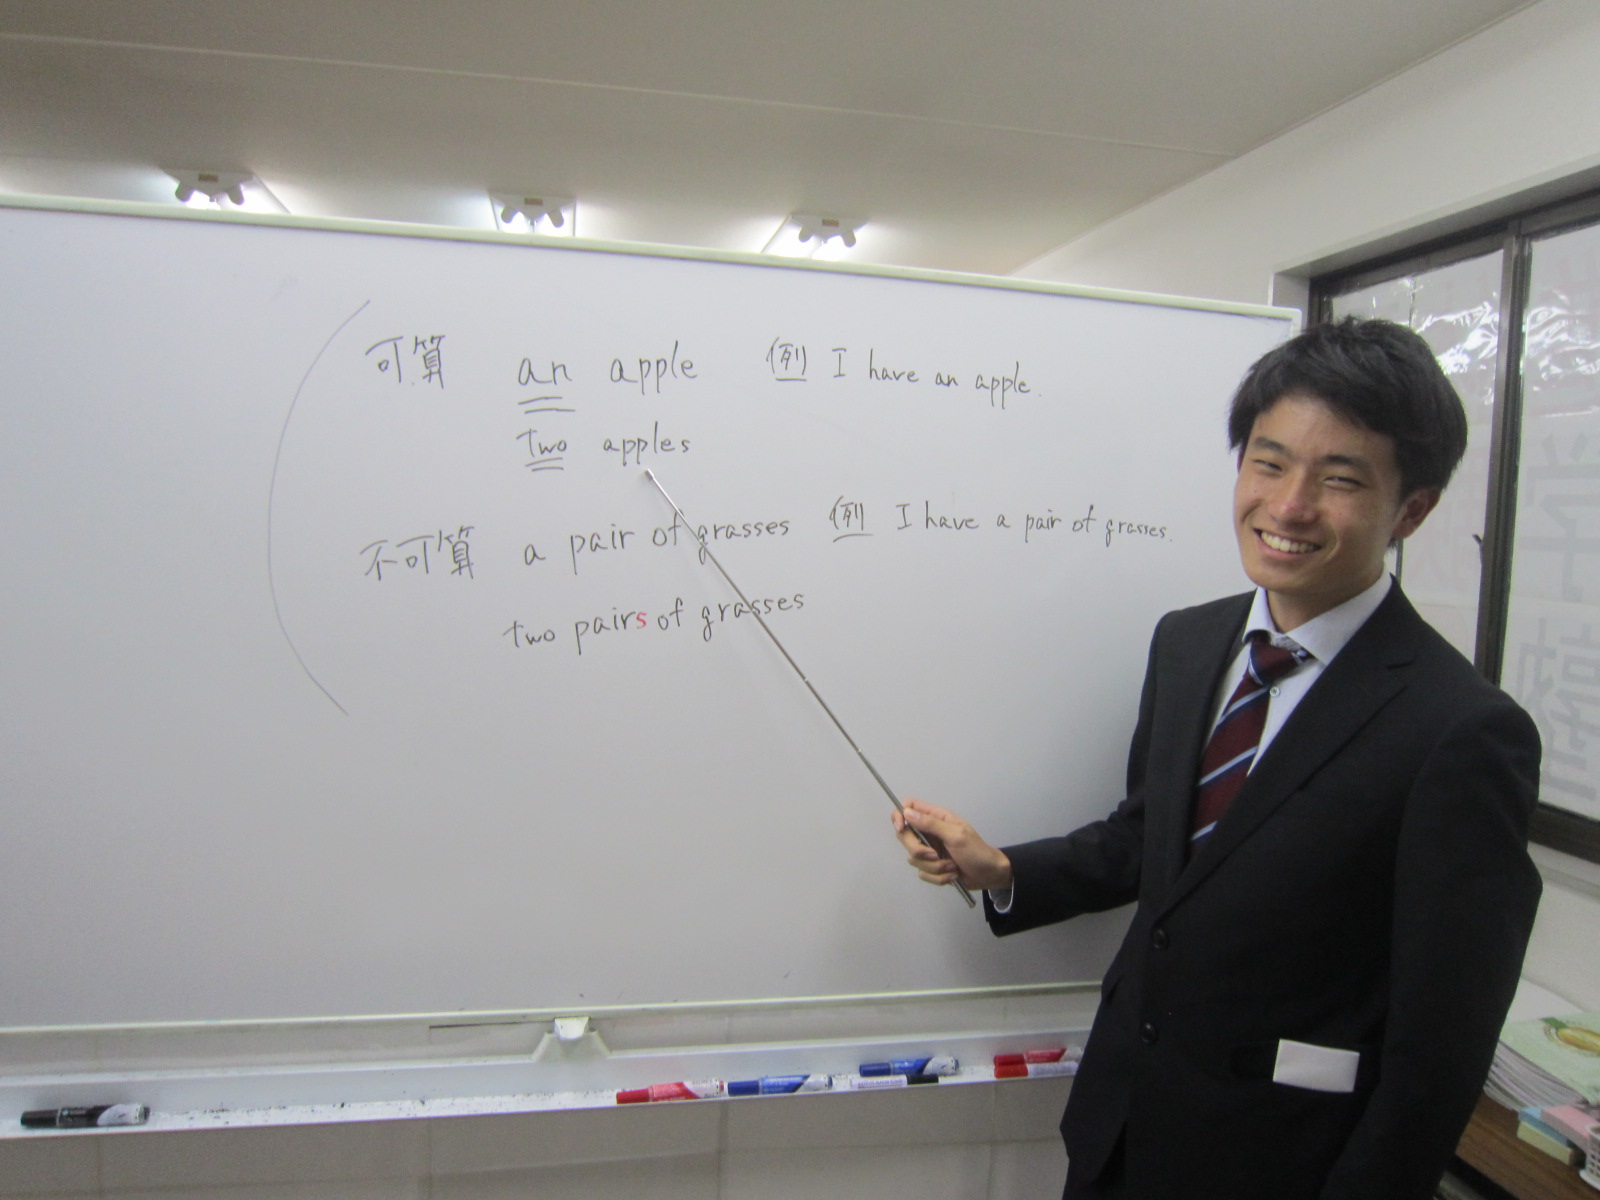 可算 an apple 例 I have an apple.
two apples
不可算 a pair of grasses 例 I have a pair of grasses.
two pairs of grasses